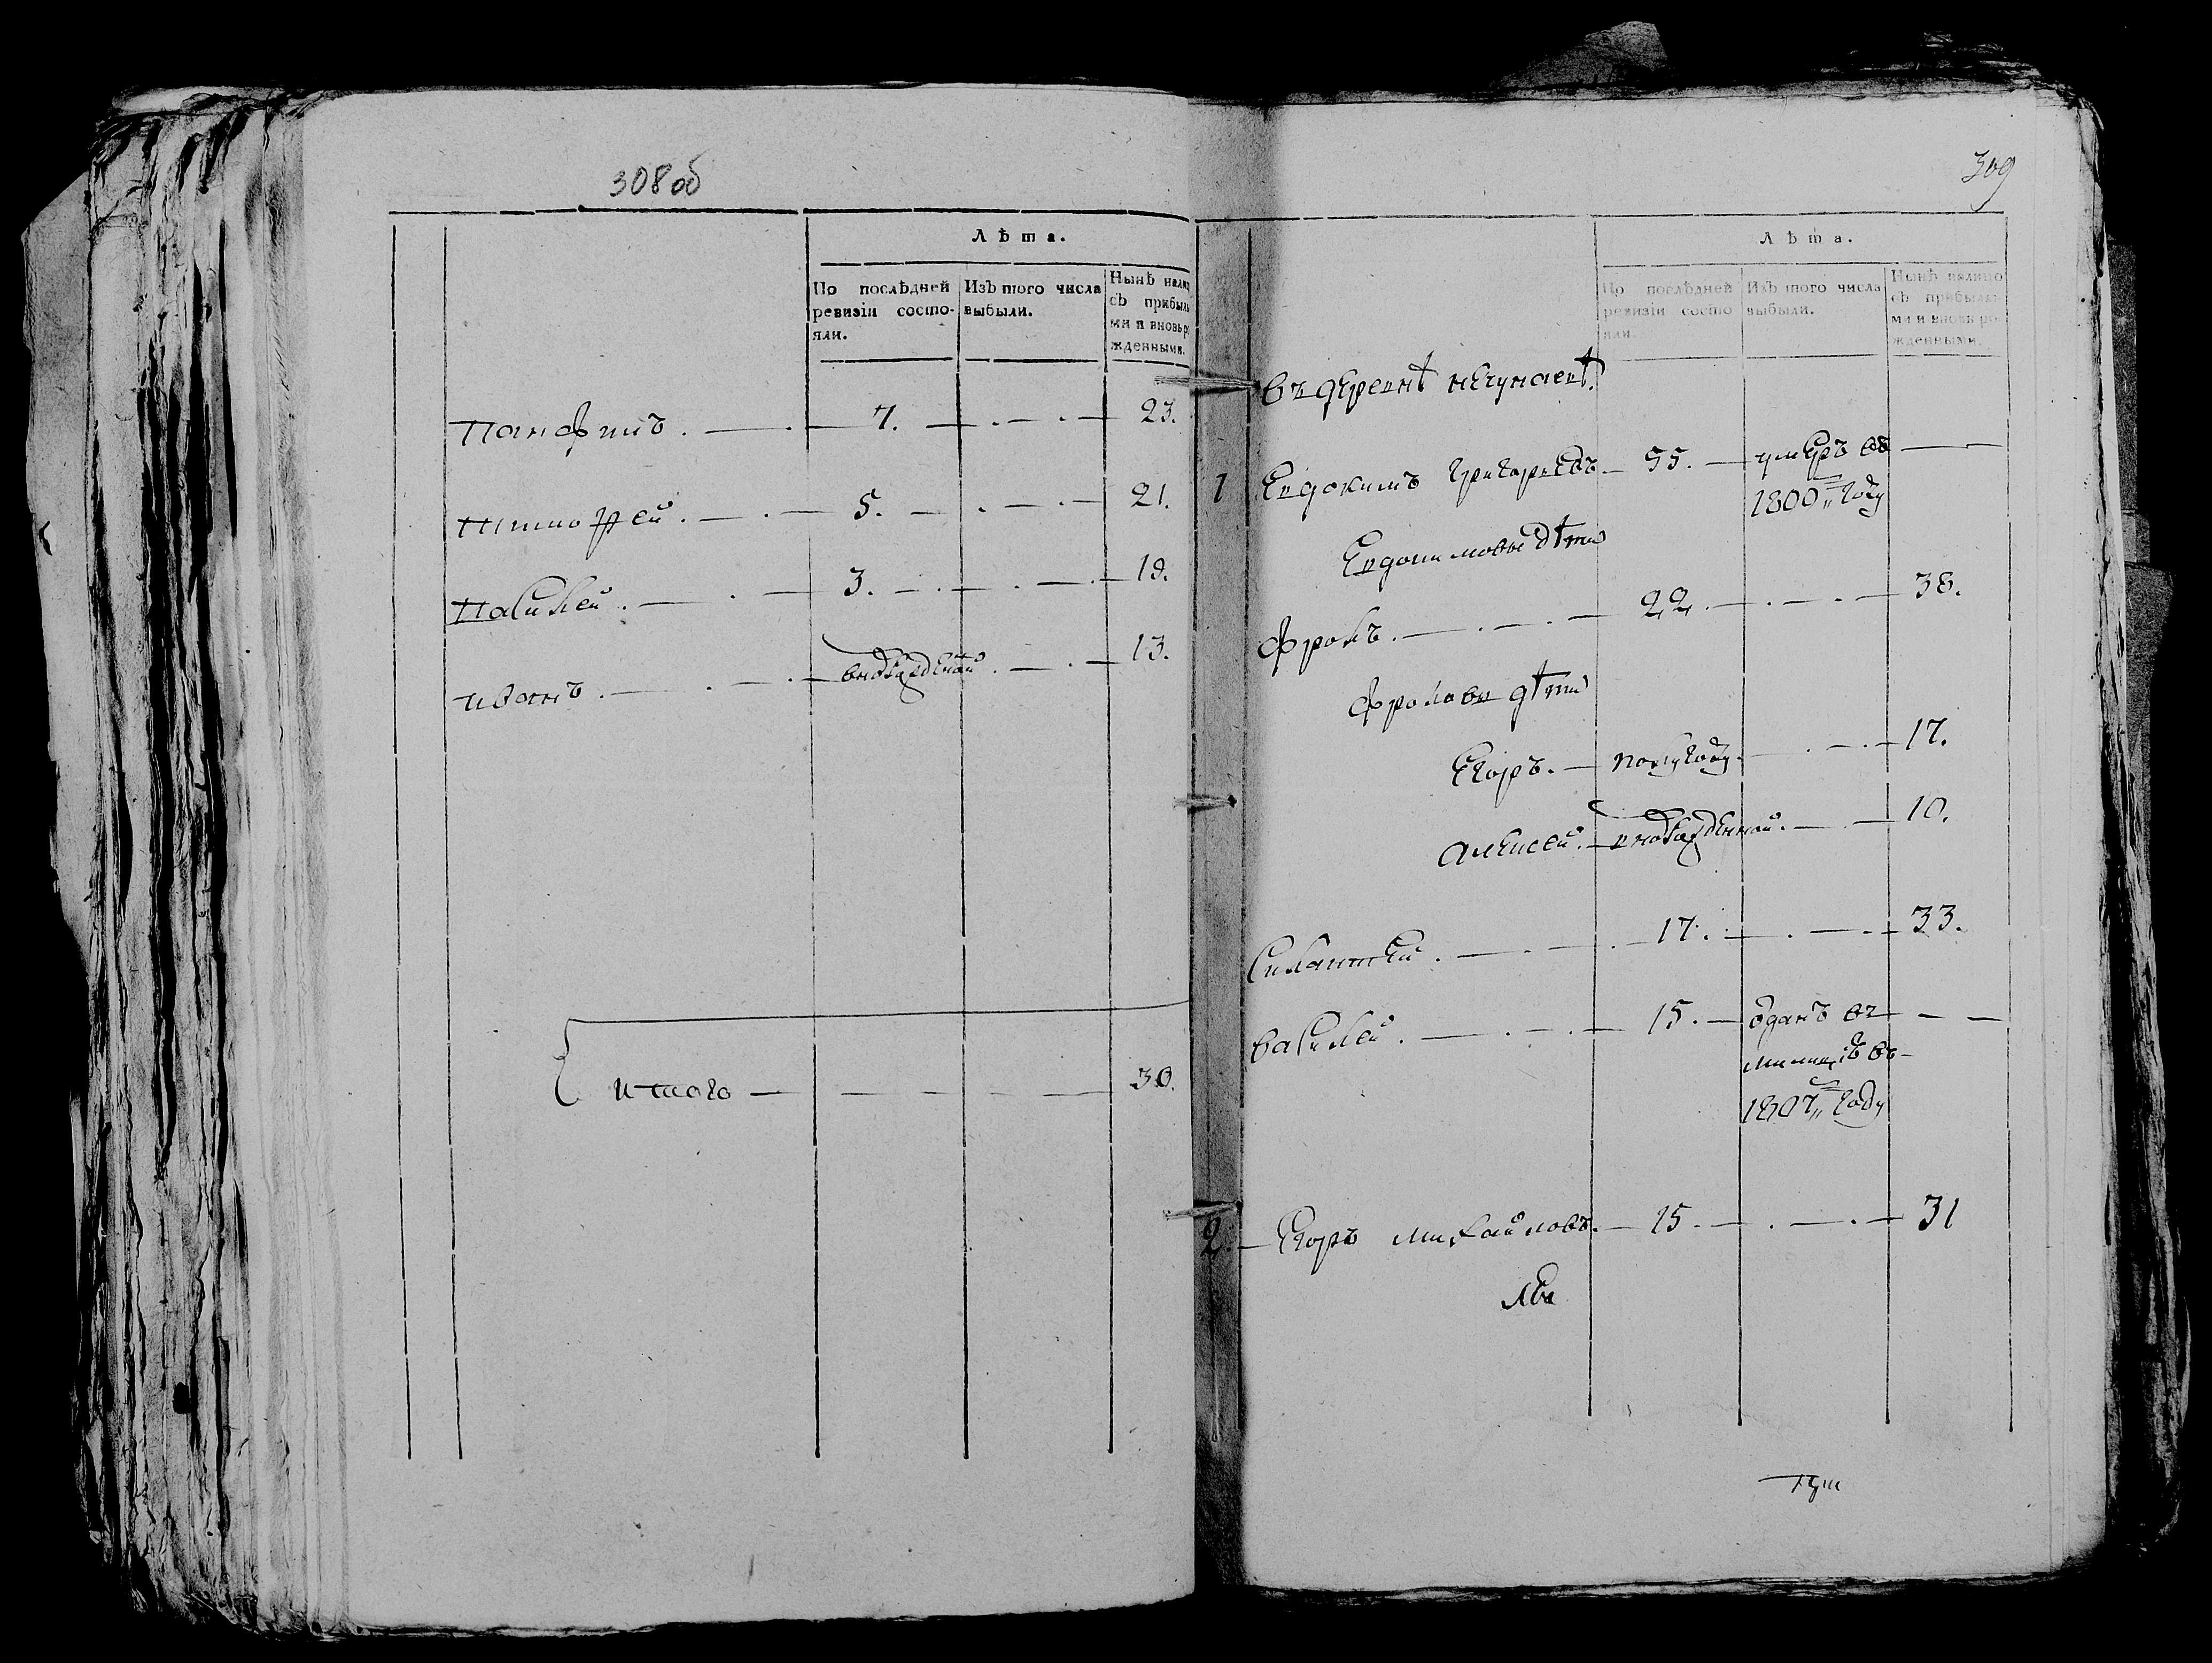 308 об
Лѣта.
По послѣдней ревизіи состояли.
Изъ того числа выбыли.
Нынѣ налиц съ прибылыми и вновь рожденными.
Панфилъ . — 7. — 23.
Тимофей . — 5. — 21.
Василей . — 3. — 19.
иванъ . — вновьрожденной . — 13.
итого — 30.
309
Лѣта.
По послѣдней ревизіи состояли.
Изъ того числа выбыли.
Нынѣ налицо съ прибылыми и вновь рожденными.
въ деревнѣ нечунаевѣ.
1 Евдокимъ Григорьевъ — 55. — умеръ въ
1800„ году
Евдокимовы дѣти
Фролъ . — 22 . — 38.
Фролавы дѣти
Егоръ . — полугоду . — 17.
алексей . — вновьрожденной . — 10.
Силантей . — 17. — 33.
василей . — 15. — отданъ въ
милицію въ
1807„ году
2. Егоръ михайловъ . — 15 . — 31
Ево